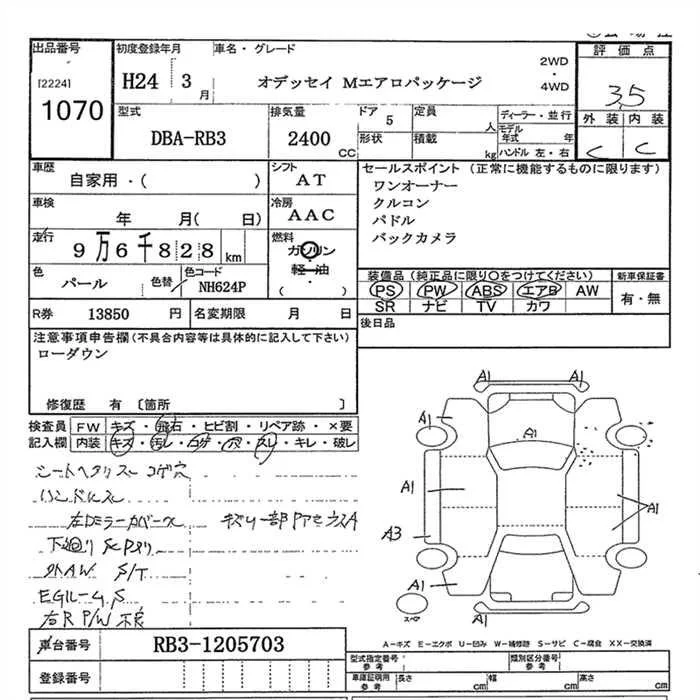 出品番号 初度登録年月 車名・グレード 評価点
[2224] 1070
H24 3月 オデッセイ Mエアロパッケージ 2WD ・ 4WD
3.5
型式 排気量 ドア 5 定員 人 ディーラー・並行 外装 内装
DBA-RB3 2400 CC 形状 積載 kg モデル年式 年 ハンドル 左・右 C C
車歴 自家用・( ) シフト AT
セールスポイント (正常に機能するものに限ります)
ワンオーナー
クルコン
パドル
バックカメラ
車検 年 月( 日) 冷房 AAC
走行 9万6千828 km 燃料 ガソリン・軽油 ( )
色 パール 色替 色コード NH624P
装備品(純正品に限り〇をつけてください) 新車保証書
PS PW ABS エアB AW 有・無
SR ナビ TV カワ
R券 13850 円 名変期限 月 日
後日品
注意事項申告欄(不具合内容等は具体的に記入して下さい)
ローダウン
修復歴 有 〔箇所 〕
検査員 FW キズ・飛石・ヒビ割・リペア跡・×要
記入欄 内装 キズ・汚レ・・穴・スレ・キレ・破レ
シートヘタリスレコゲ穴
ハンドルスレ
左Dミラーカバース キズ
下廻り
外AW S/T
右R P/W 不良
A1 A1
A1
A1
A1
A1
A3
A1
A1
スペア
A1
車台番号 RB3-1205703
登録番号
A-キズ E-エクボ U-凹み W-補修跡 S-サビ C-腐食 XX-交換済
型式指定番号 参考 類別区分番号 参考
車庫証明用 参考 長さ cm 幅 cm 高さ cm